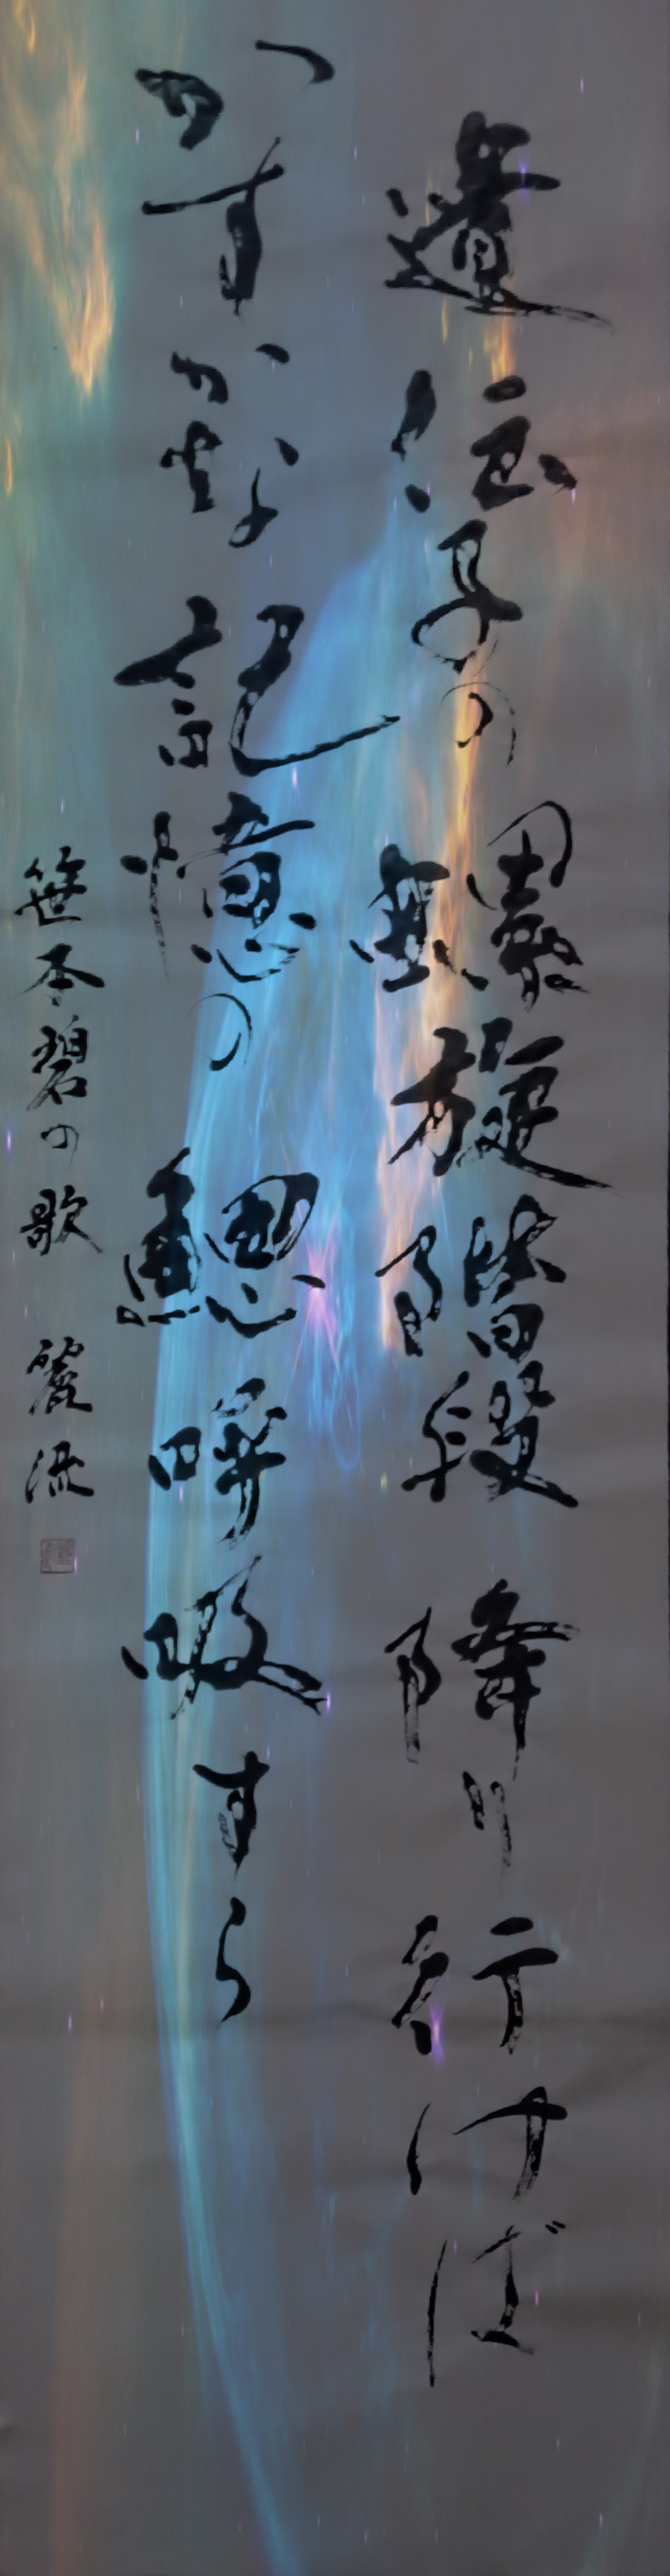 遺伝子の螺旋階段降り行けば
かすかな記憶の鰓呼吸すら
笹本碧の歌 麗流